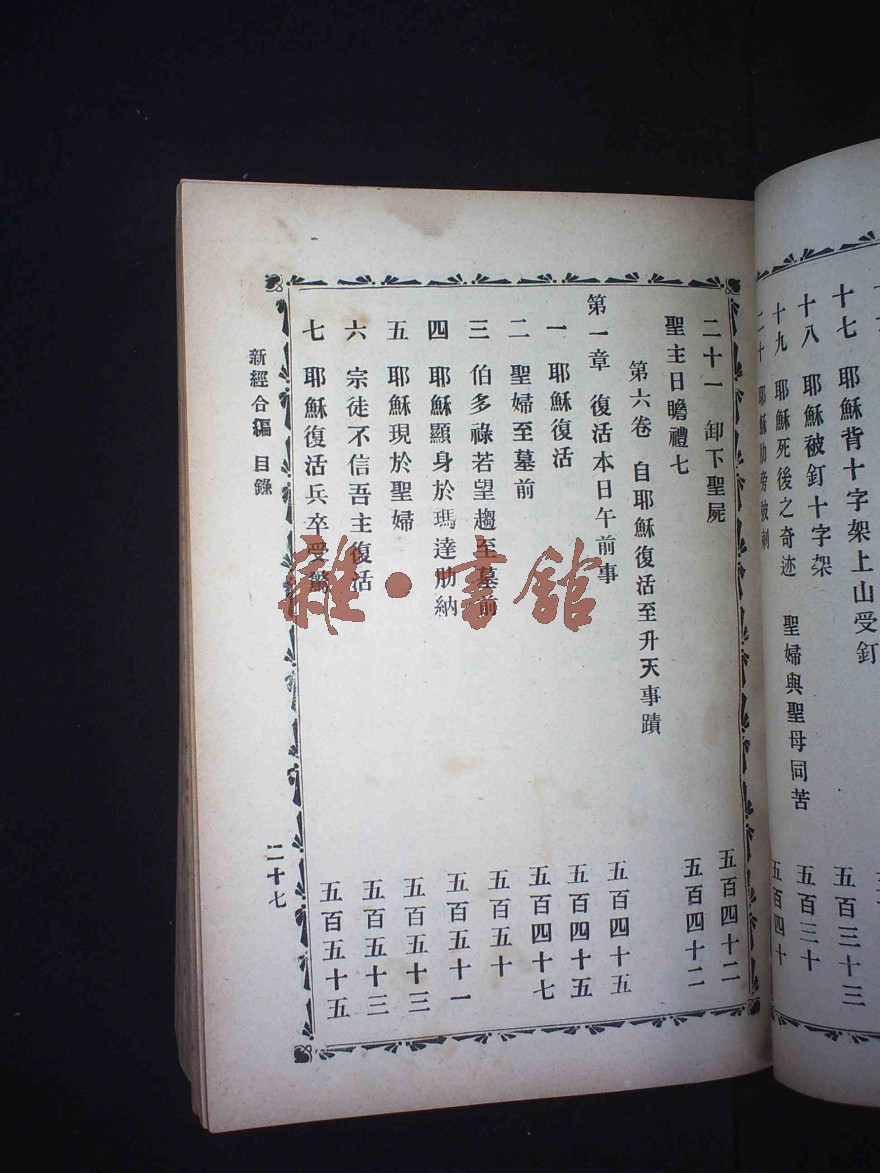 十七 耶穌背十字架上山受釘 五百三十三
十八 耶穌被釘十字架
十九 耶穌死後之奇迹 聖婦與聖母同苦 五百三十
二十 耶穌肋旁被刺 五百四十
二十一 卸下聖屍 五百四十二
聖主日瞻禮七 五百四十二
第六卷 自耶穌復活至升天事蹟
第一章 復活本日午前事 五百四十五
一 耶穌復活 五百四十五
二 聖婦至墓前 五百四十七
三 伯多祿若望趨至墓前 五百五十
四 耶穌顯身於瑪達肋納 五百五十一
五 耶穌現於聖婦 五百五十三
六 宗徒不信吾主復活 五百五十三
七 耶穌復活兵卒受 五百五十五
新經合編 目錄 二十七
雜·書館